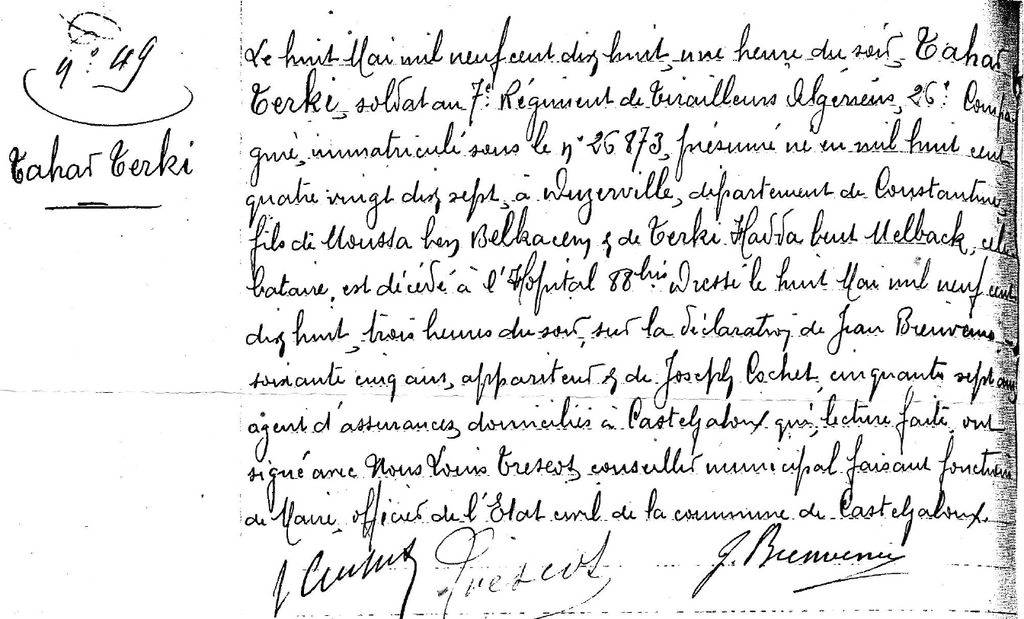 n° 49
Tahar Terki
Le huit Mai mil neuf cent dix huit, une heure du soir, Tahar
Terki, soldat au 7e Régiment de Tirailleurs Algériens, 26e Compa
gnie, immatriculé sous le n° 26873, présumé né en mil huit cent
quatre vingt dix sept, à Duzerville, département de Constantine,
fils de Moussa ben Belkacem & de Terki Hadda bent Melback, céli
bataire, est décédé à l'Hôpital 88 bis Dressé le huit Mai mil neuf cent
dix huit, trois heures du soir, sur la déclaration de Jean Bienvenu
soixante cinq ans, appariteur & de Joseph Cochet, cinquante sept ans
agent d'assurances, domiciliés à Casteljaloux qui, lecture faite, ont
signé avec Nous Louis Trescos, conseiller municipal faisant fonctions
de Maire, officier de l'Etat civil de la commune de Casteljaloux.
J Cochet Trescos J. Bienvenu